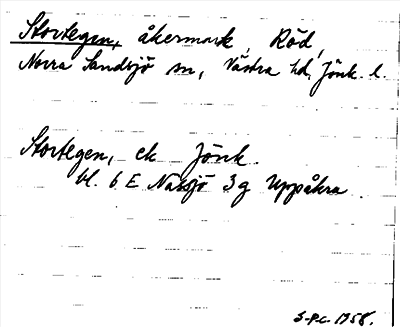 Stortegen, åkermark, Röd,
Norra Sandsjö sn, Västra hd, Jönk. l.
Stortegen, ek Jönk.
bl. 6 E Nässjö 3 g Uppåkra
S-P.c. 1958.